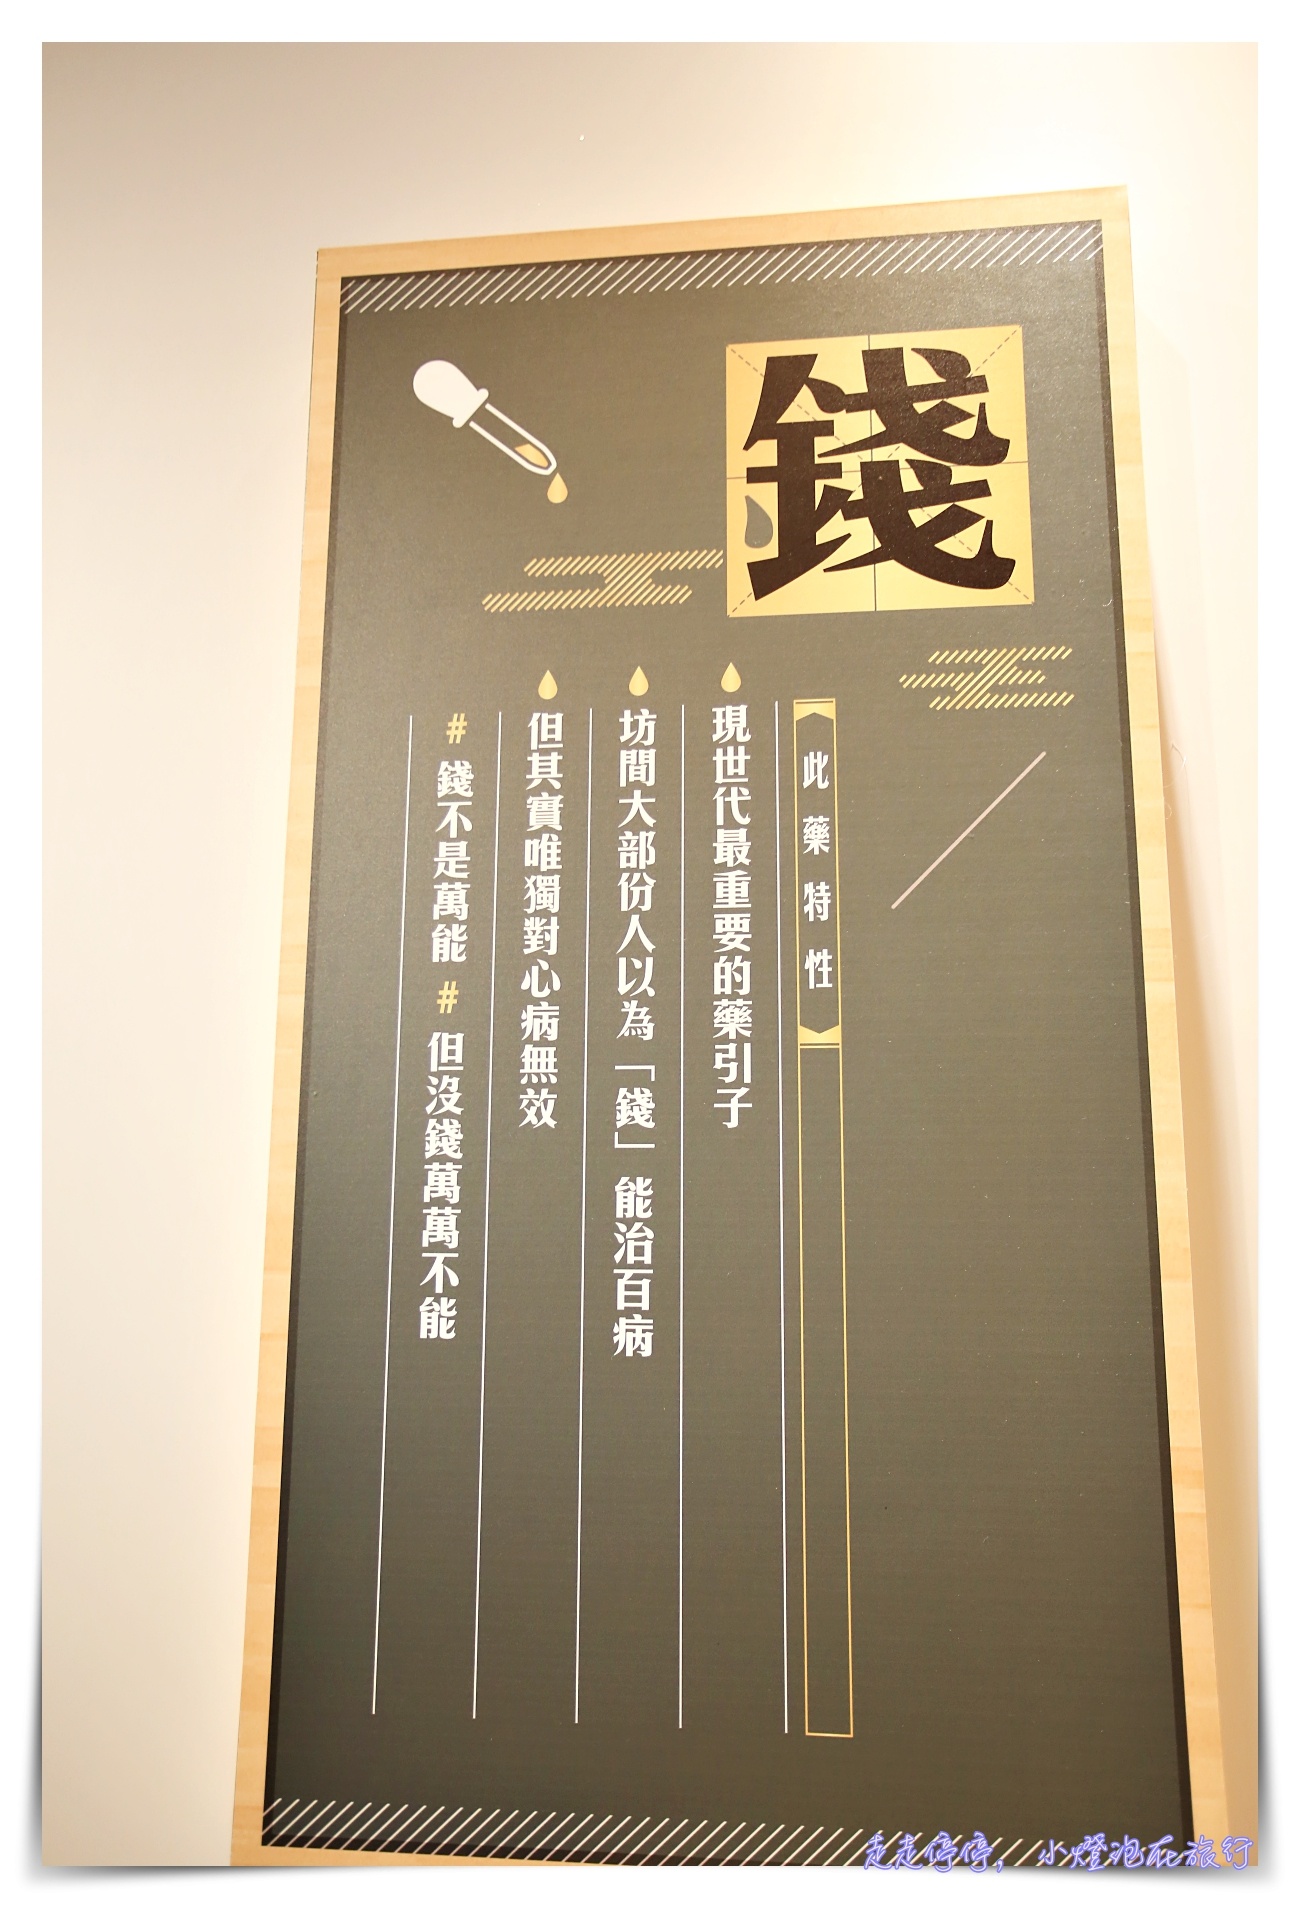 錢
此藥特性
現世代最重要的藥引子
坊間大部份人以為「錢」能治百病
但其實唯獨對心病無效
# 錢不是萬能 # 但沒錢萬萬不能
走走停停，小燈泡在旅行